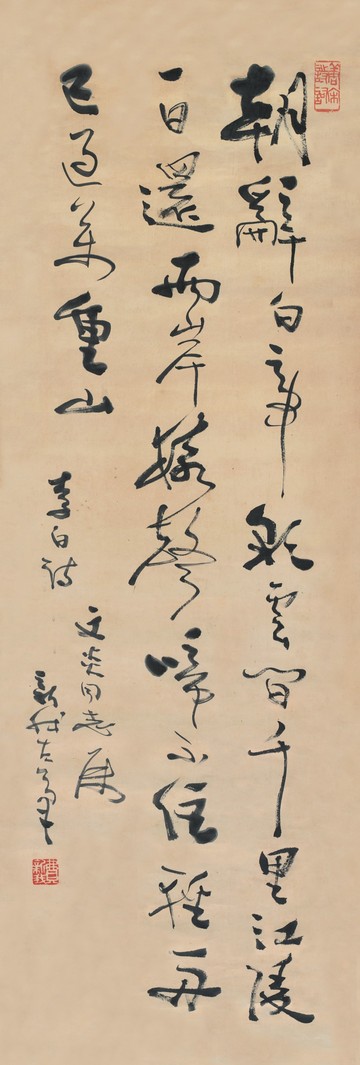 朝辭白帝彩雲間千里江陵
一日還兩岸猿聲啼不住輕舟
已過萬重山
李白詩
文炎同志屬
費新我左筆